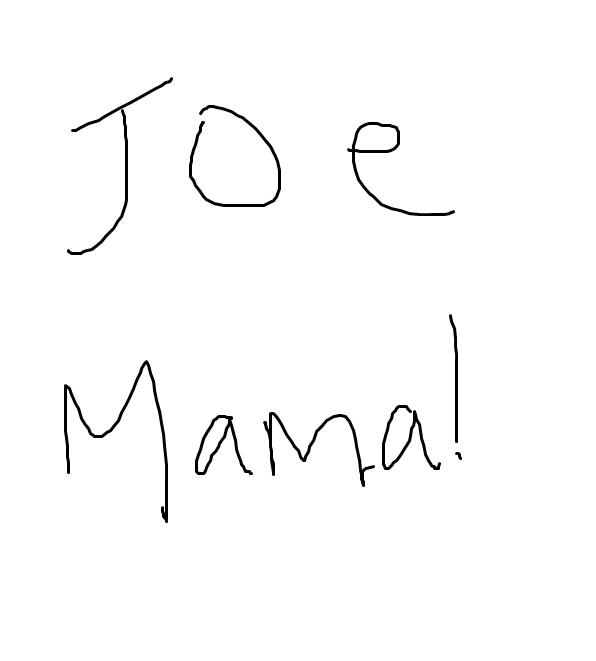 Joe
Mama!